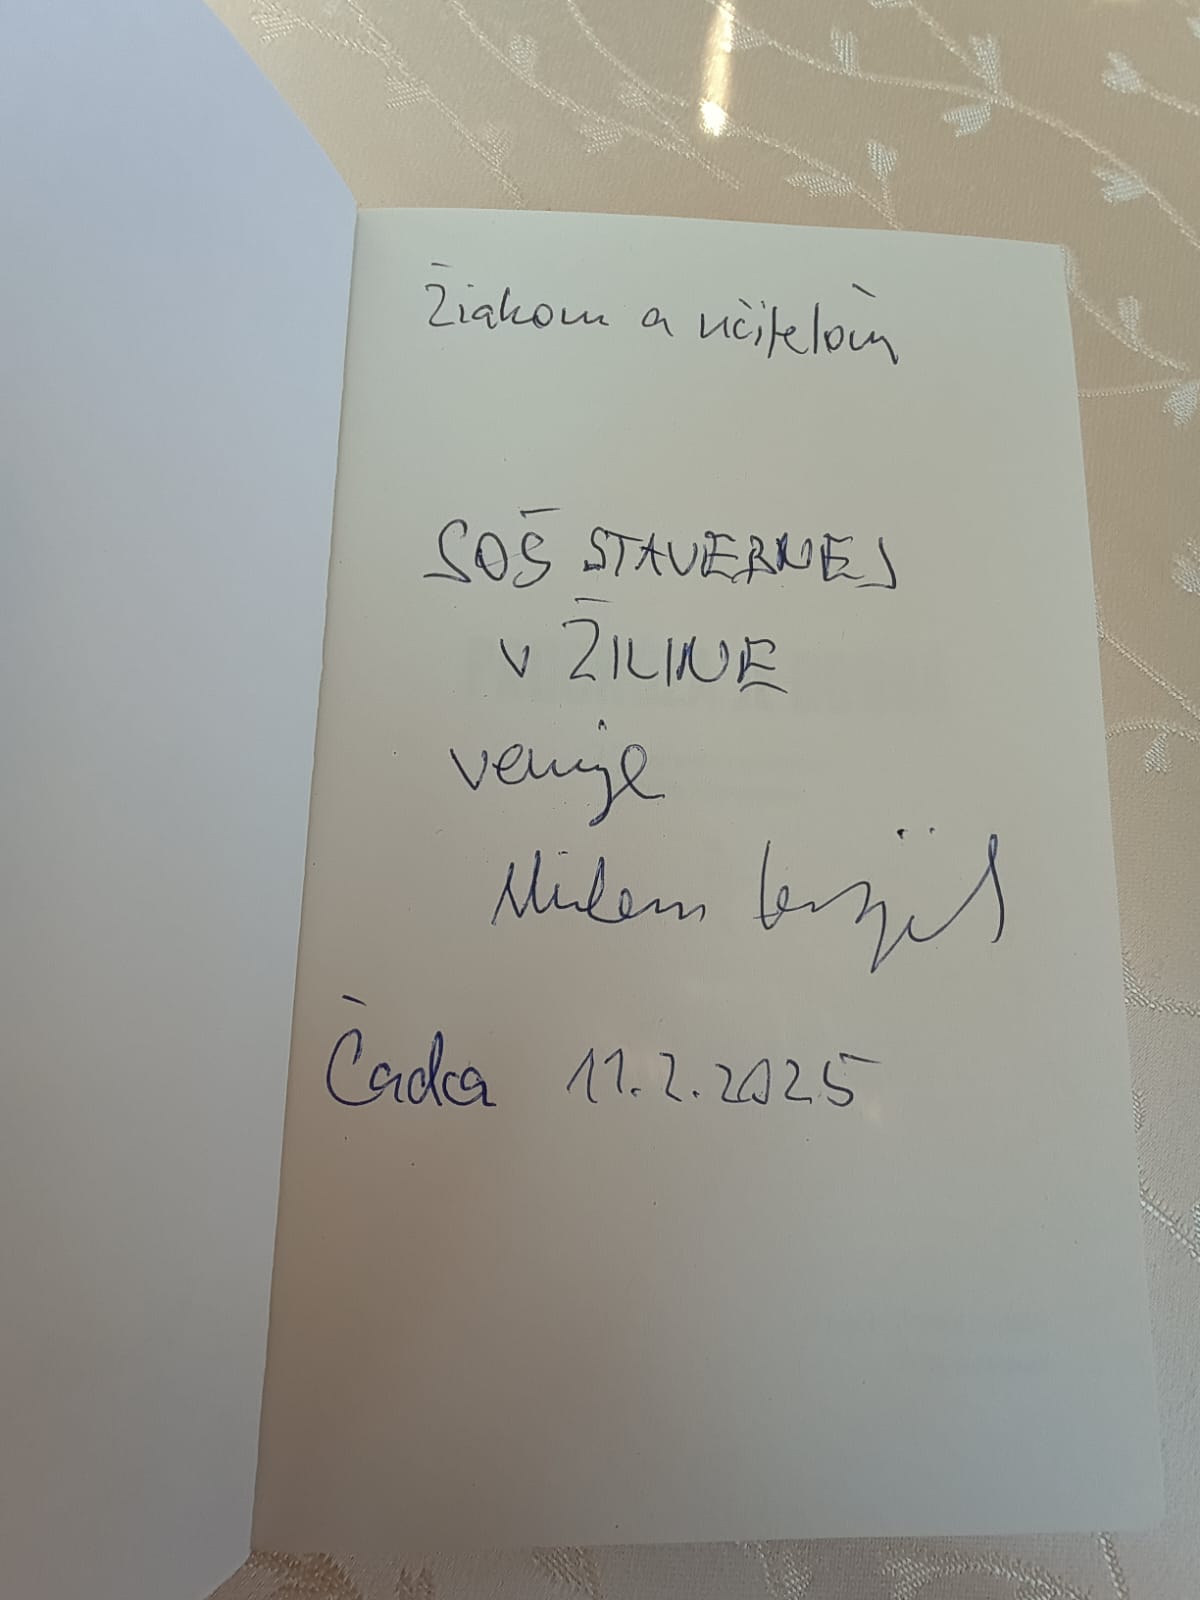 Žiakom a učiteľom
SOŠ STAVEBNEJ
V ŽILINE
venuje
Milan
Čadca 11.2.2025